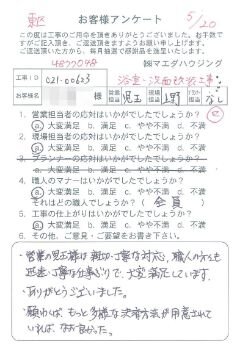 お客様アンケート 5/20
この度は工事のご用命を頂きありがとうございました。お手数で
すがご記入頂き、ご返送頂きますようお願い申し上げます。
ご返送頂いた方から、毎月抽選で感謝品を送付致します。
㈱マエダハウジング
工事ID 021-00623 浴室・洗面改装工事
お客様名 様 営業担当 児玉 現場担当 上野 なし
1. 営業担当者の応対はいかがでしたでしょうか?
ⓐ大変満足 b. 満足 c. やや不満 d. 不満
2. 現場担当者の応対はいかがでしたでしょうか?
ⓐ大変満足 b. 満足 c. やや不満 d. 不満
3. プランナーの応対はいかがでしたでしょうか?
a. 大変満足 b. 満足 c. やや不満 d. 不満
4. 職人のマナーはいかがでしたでしょうか?
ⓐ大変満足 b. 満足 c. やや不満 d. 不満
それはどの職人でしょうか?( 全員 )
5. 工事の仕上がりはいかがでしたでしょうか?
ⓐ大変満足 b. 満足 c. やや不満 d. 不満
6. その他、ご意見・ご要望をお書き下さい。
・営業の児玉様は親切・丁寧な対応、職人の方も
迅速・丁寧な仕事ぶりで、大変満足しています。
・ありがとうございました。
・願わくば、もっと多様な決済方法が用意されて
いれば、なお良かった。